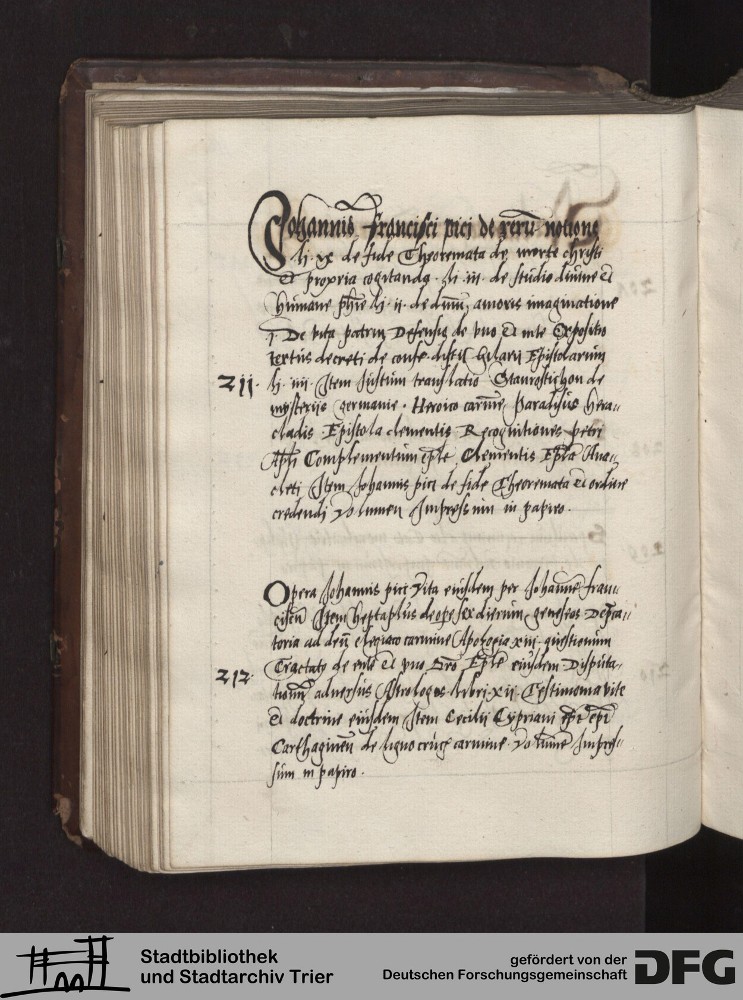 Johannis francisci pici de rerū notione
li. ix de fide Theoremata de morte christi
et propria cogitanda. li. iii. de studio diuine et
humane phīe li. ii. de diuini amoris imaginatione
i. De vita patrū Defensio de vno et ente Expositio
textus decreti de conse. dist. ii hilarii Epistolarum
211. li. iiii. Item Justini translatio Staurostichon de
mysteriis germanie. Heroico carmīe. Paradisus hera-
clidis. Epistola clementis Recognitiones petri
Apłi Complementum epłe Clementis Epła Ana-
cleti. Item Johannis pici de fide Theoremata et ordine
credendi Volumen Impressum in papiro.
Opera Johannis pici Vita eiusdem per Johannē fran-
ciscū Item heptaplus de ope sex dierum geneseos. Depca-
toria ad deū elegiaco carmine Apologia xiii. questionum
Tractatus de ente et vno Oro Epłe eiusdem Disputa-
212. tionū aduersus Astrologos libri. xii. Testimonia vite
et doctrine eiusdem Item Cecilii Cypriani epi
Carthaginēn de ligno crucis carmine. Volumē Impres-
sum in papiro.
Stadtbibliothek
und Stadtarchiv Trier
gefördert von der
Deutschen Forschungsgemeinschaft
DFG